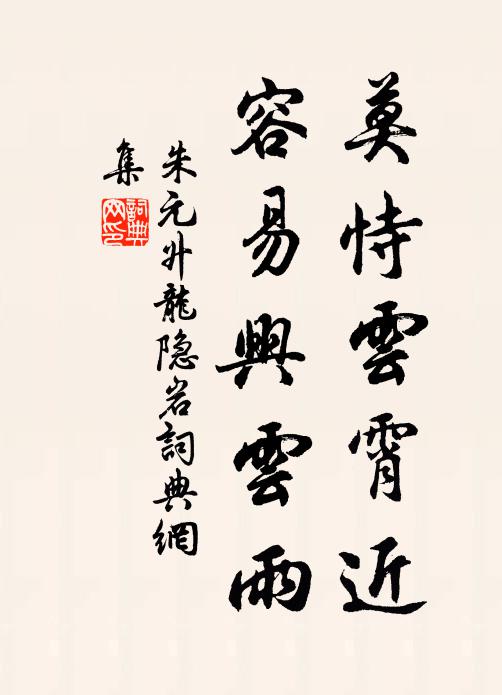 莫恃雲霄近
容易興雲雨
朱元升龍隐岩詞典網
集
詞典網印